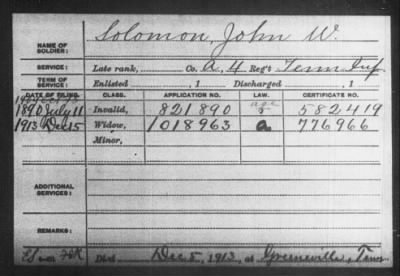 Solomon, John W.
NAME OF SOLDIER:
SERVICE: Late rank, Co. A, 4 Reg't Tenn Inf
TERM OF SERVICE: Enlisted 1 Discharged 1
DATE OF FILING. CLASS. APPLICATION NO. LAW. CERTIFICATE NO.
age
1890 July 11 Invalid, 821890 582419
1913 Dec 15 Widow, 1018963 a 776966
Minor,
ADDITIONAL SERVICES:
REMARKS:
Died Dec 5, 1913, at Greeneville, Tenn